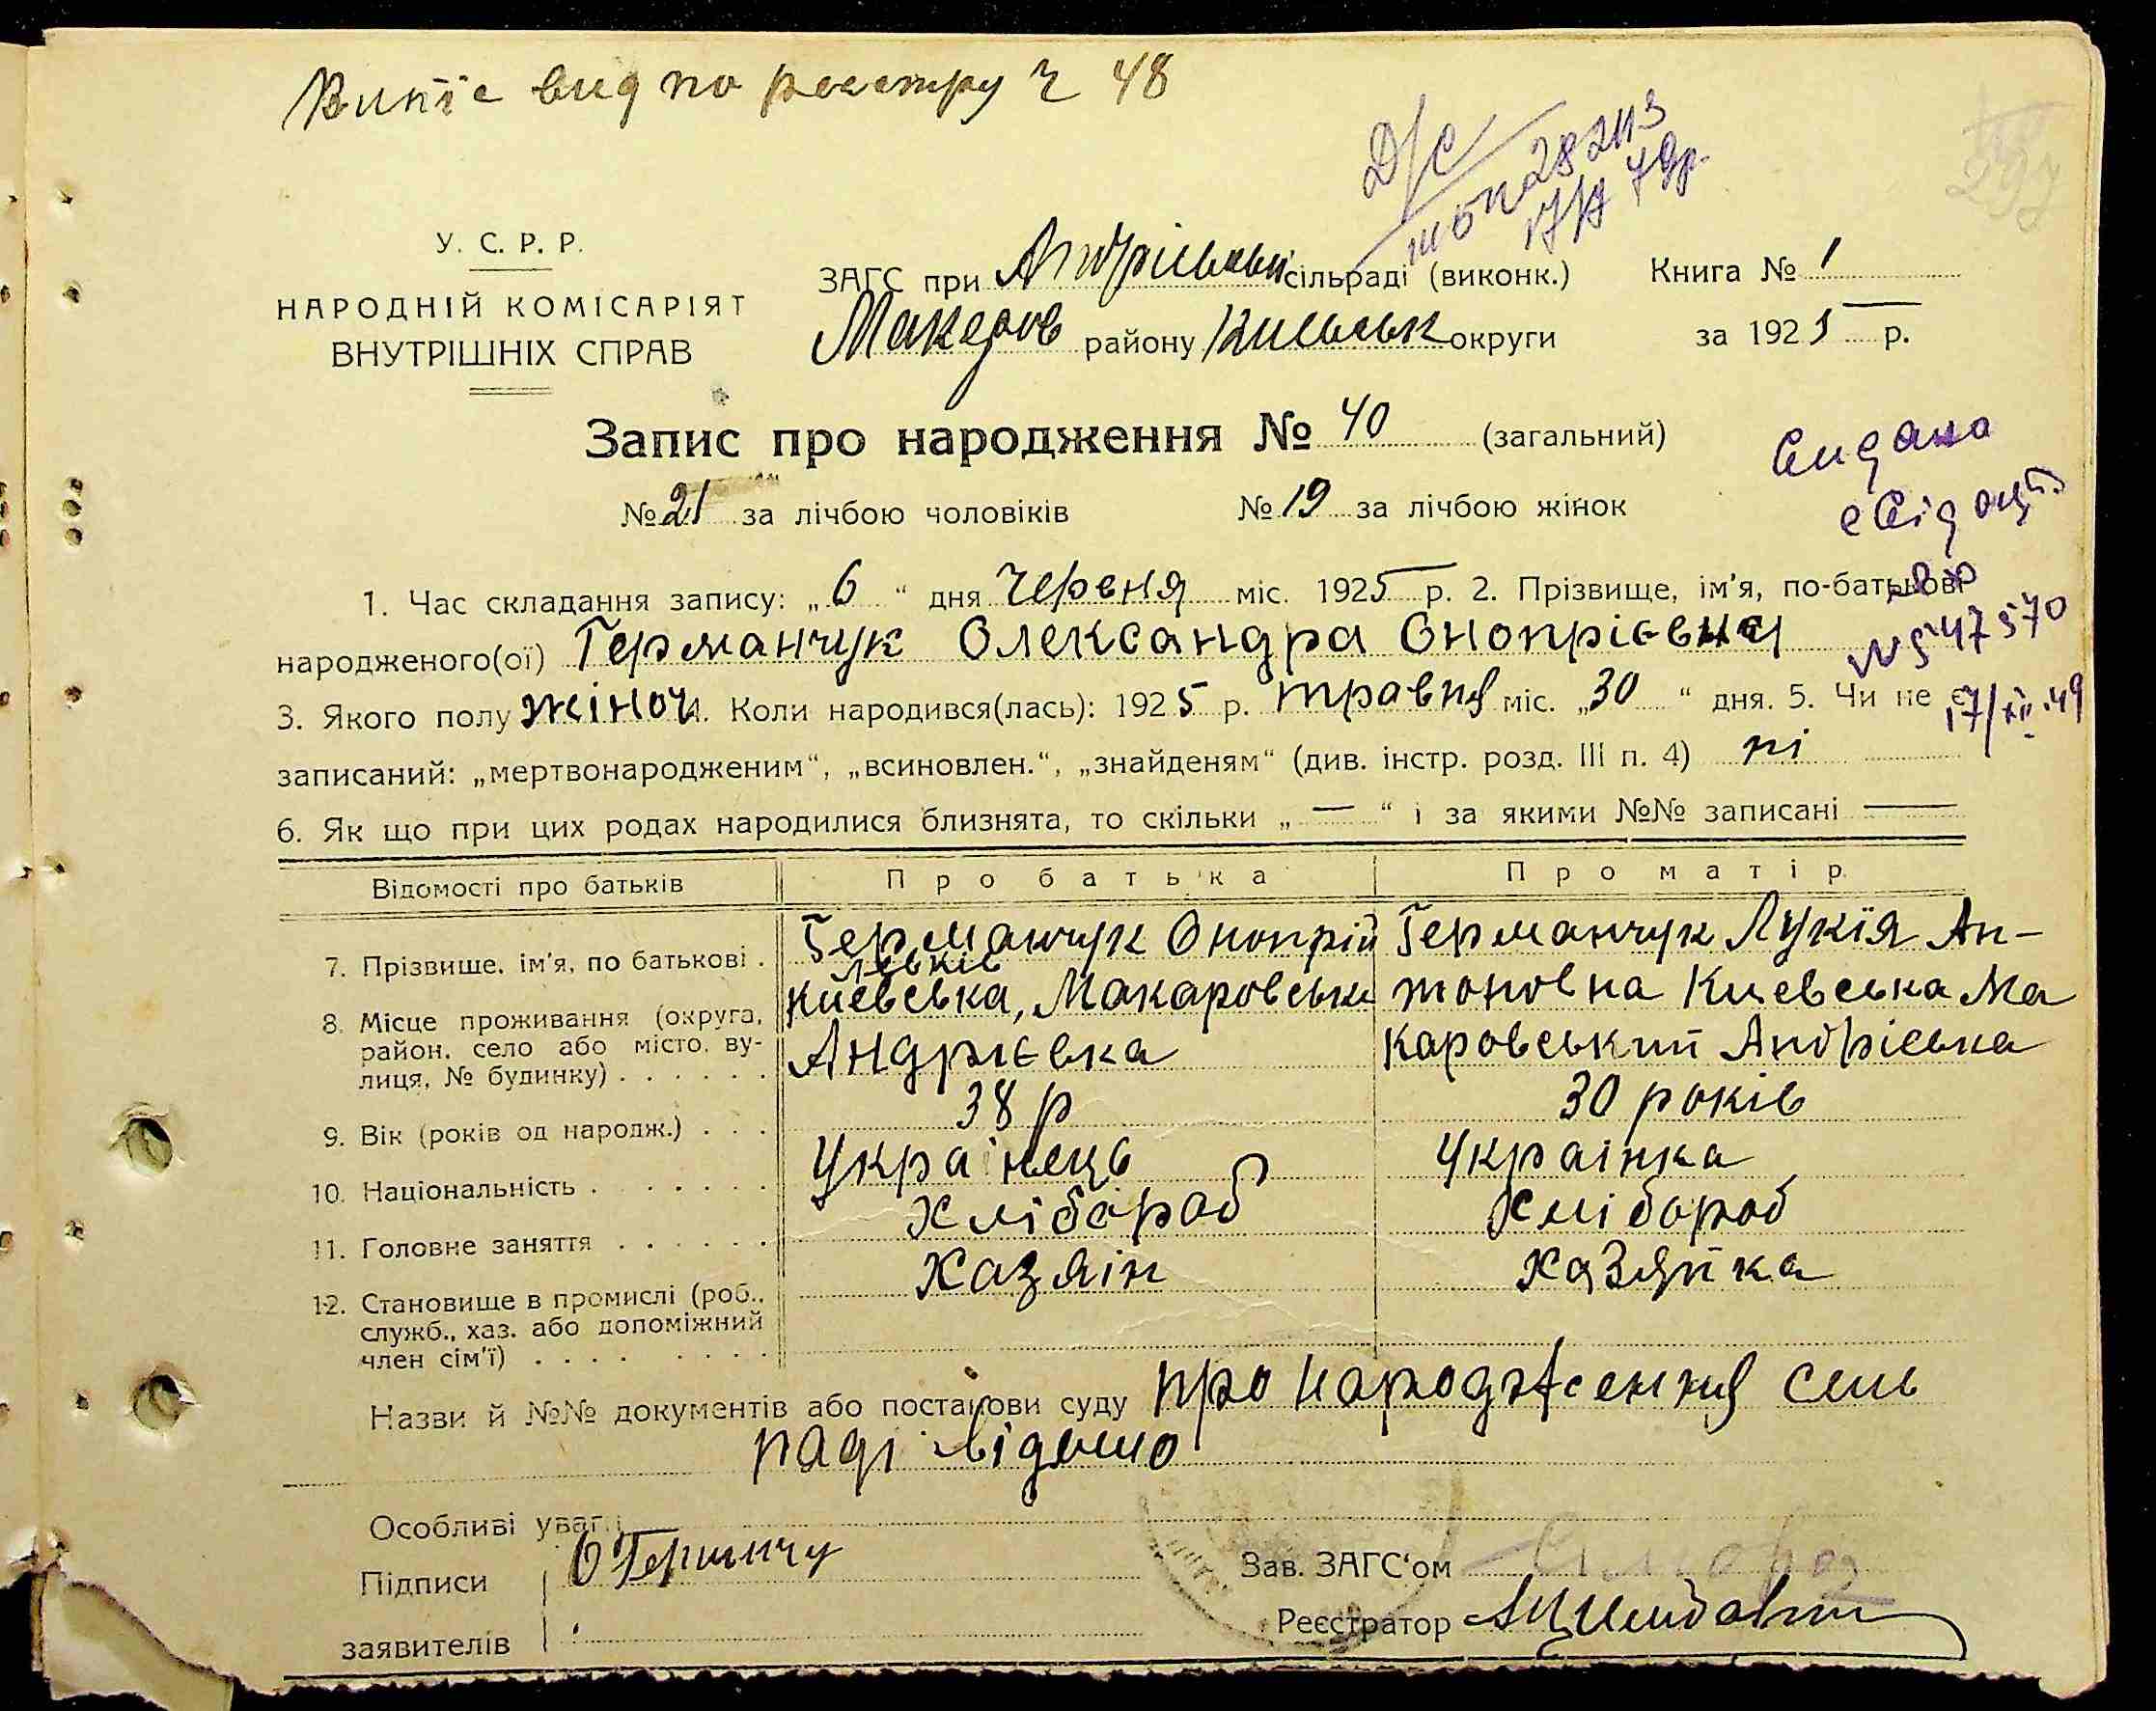 Випіс вид по реестру ч 48
Д/с
У. С. Р. Р.
НАРОДНІЙ КОМІСАРІЯТ
ВНУТРІШНІХ СПРАВ
ЗАГС при Андріївськ сільраді (виконк.) Книга № 1
Макаров району Київськ округи за 1925 р.
Запис про народження № 40 (загальний)
№ 21 за лічбою чоловіків № 19 за лічбою жінок
видано
свідоцт
№ 47570
17/XII.49
1. Час складання запису: „6“ дня Червня міс. 1925 р. 2. Прізвище, ім'я, по-батькові
народженого(ої) Германчук Олександра Онопрієвна
3. Якого полу жіноч. Коли народився(лась): 1925 р. травня міс. „30“ дня. 5. Чи не є
записаний: „мертвонародженим“, „всиновлен.“, „знайденям“ (див. інстр. розд. III п. 4) ні
6. Як що при цих родах народилися близнята, то скільки „—“ і за якими №№ записані —
Відомості про батьків Про батька Про матір
7. Прізвище, ім'я, по батькові . Германчук Онопрій Германчук Лукія Ан-
8. Місце проживання (округа, Киевська, Макаровськи тоновна Киевська Ма
район, село або місто, ву-
лиця, № будинку) . . . . . . Андриєвка каровський Андрієвка
9. Вік (років од народж.) . . . 38 р 30 років
10. Національність . . . . . . Украінець Украінка
11. Головне заняття . . . . . . Хлібороб Хлібороб
12. Становище в промислі (роб., Хазяін Хазяйка
служб., хаз. або допоміжний
член сім'ї) . . . . . . . .
Назви й №№ документів або постанови суду про народження сель
раді відомо
Особливі уваги
Підписи
заявителів
Зав. ЗАГС'ом
Реєстратор